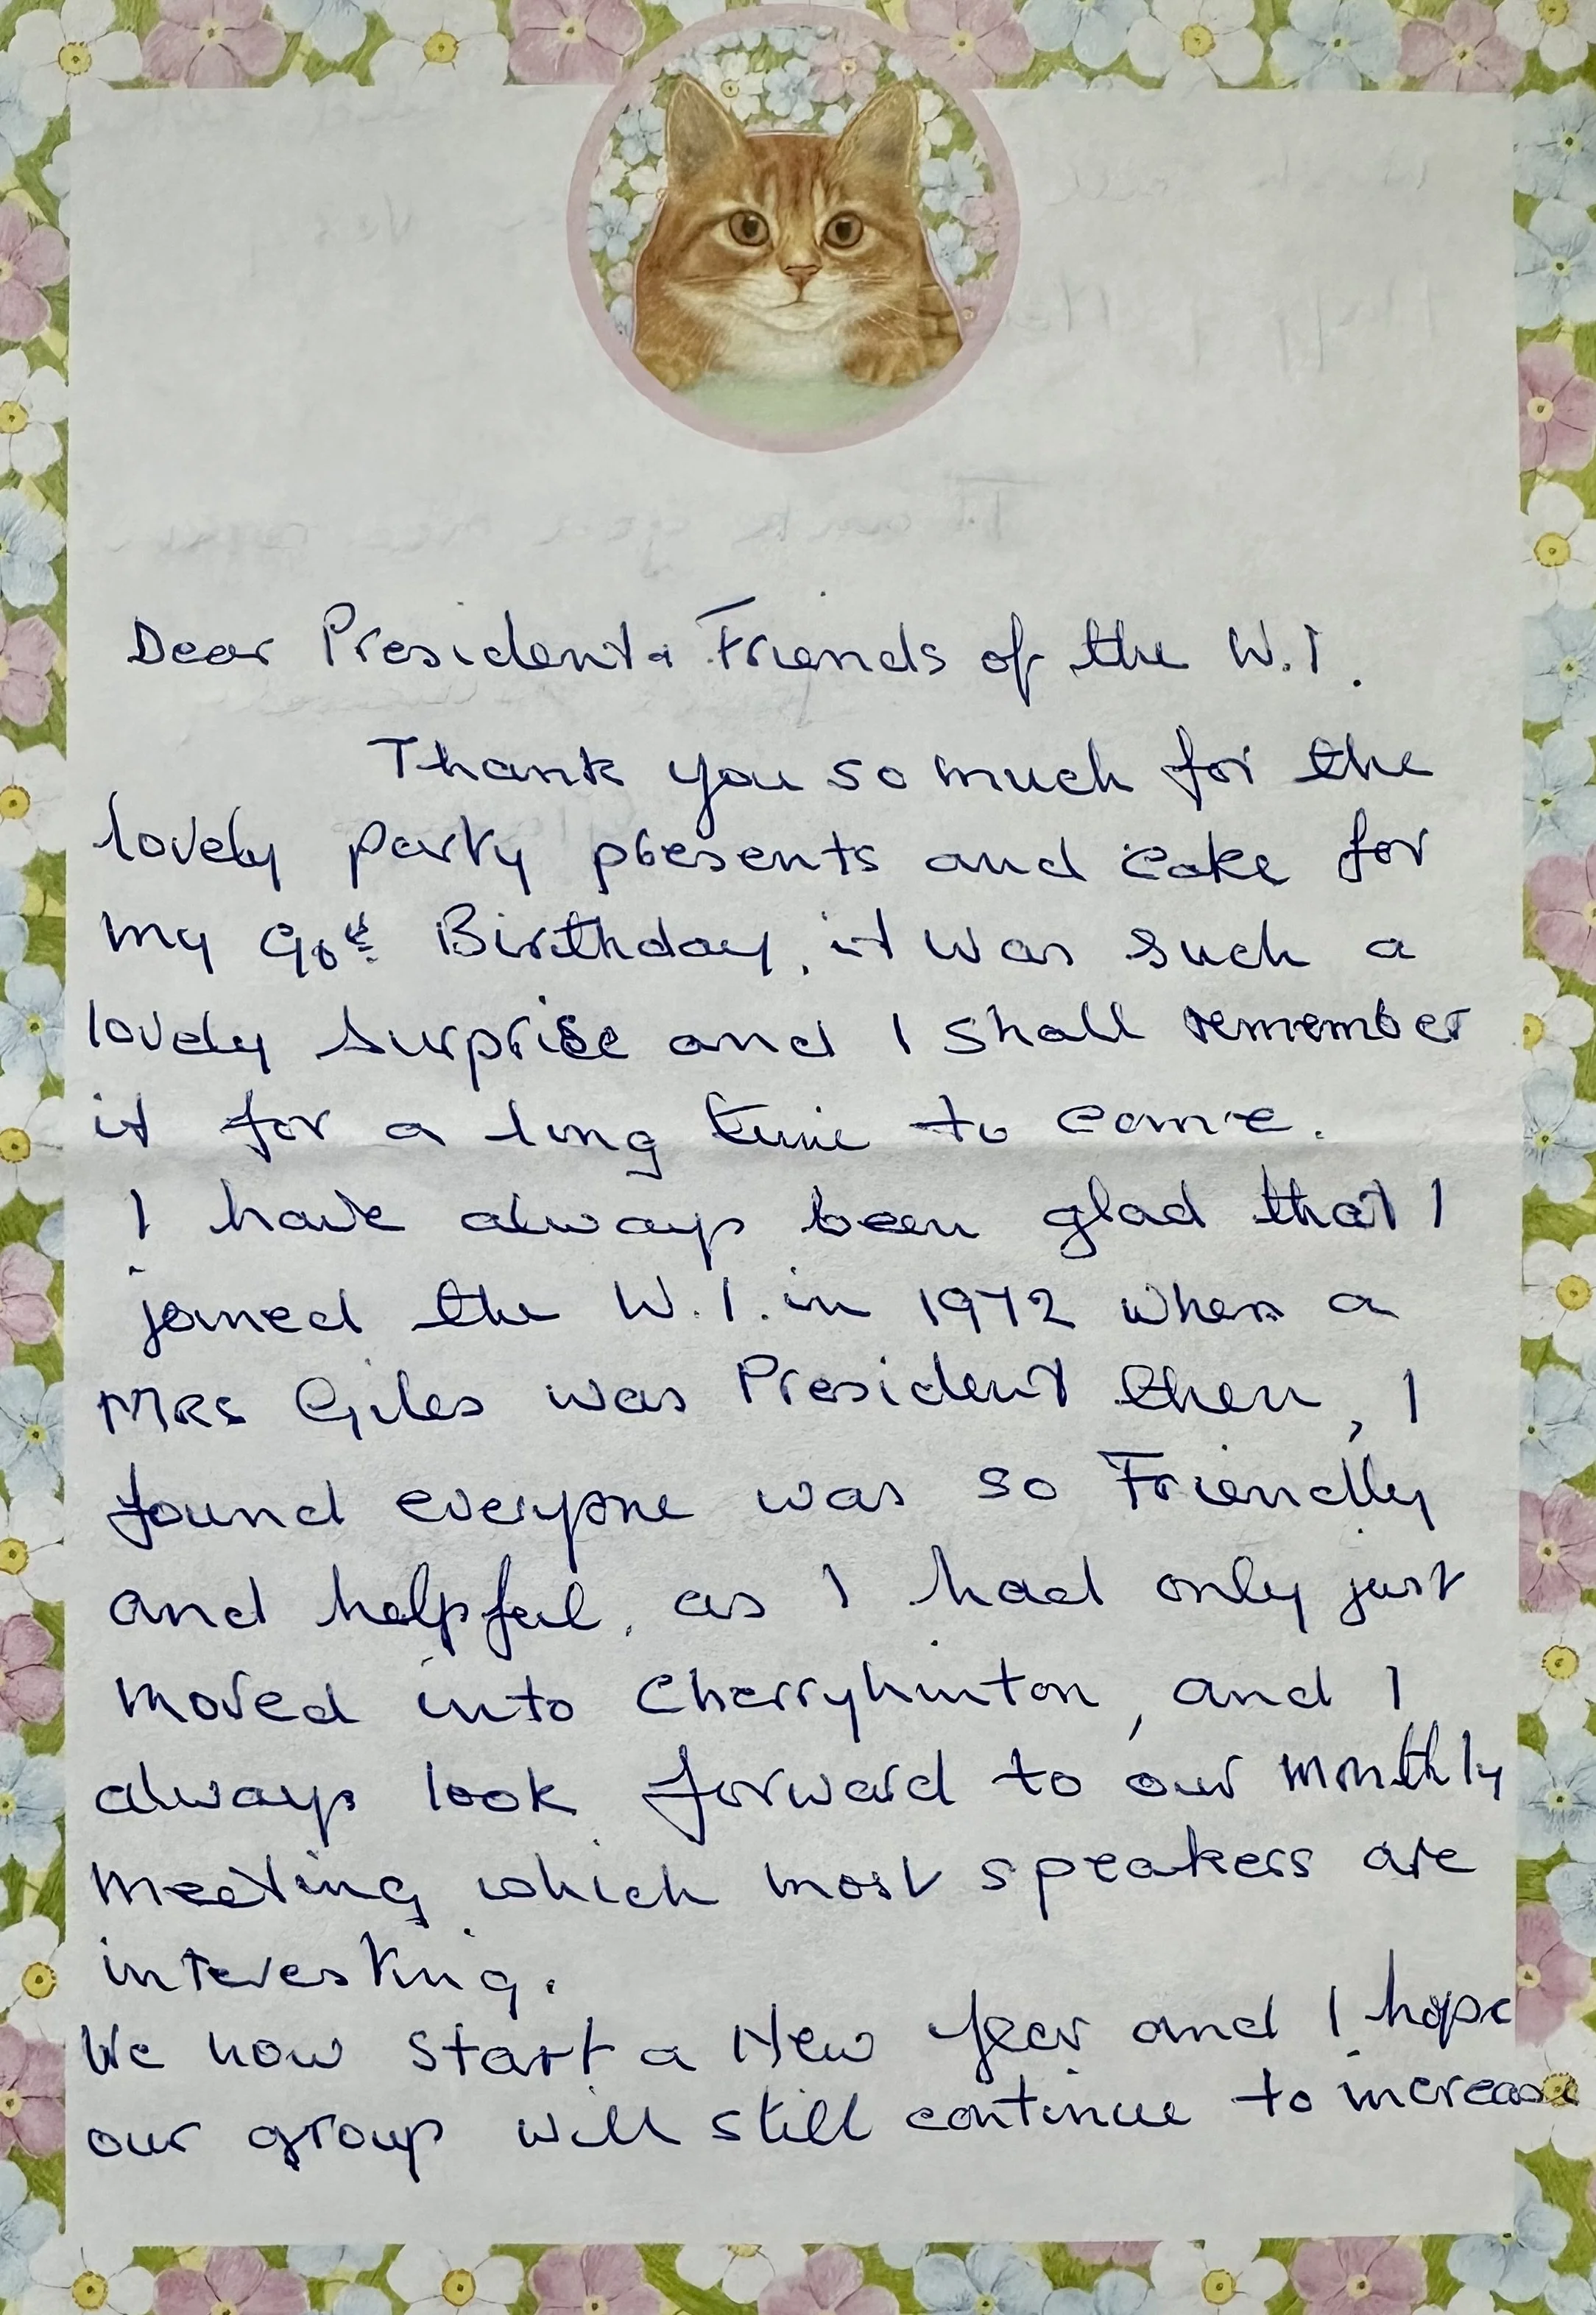 Dear President & Friends of the W.I.
Thank you so much for the
lovely party presents and cake for
my 90th Birthday, it was such a
lovely surprise and I shall remember
it for a long time to come.
I have always been glad that I
joined the W.I. in 1972 when a
Mrs Giles was President then, I
found everyone was so Friendly
and helpful, as I had only just
moved into Cherryhinton, and I
always look forward to our monthly
meeting which most speakers are
interesting.
We now start a New Year and I hope
our group will still continue to increase